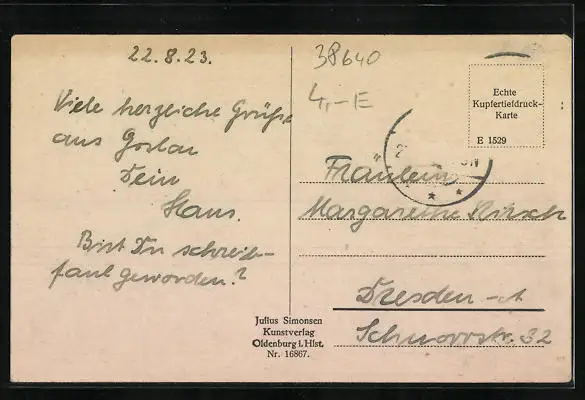 22.8.23.
Viele herzliche Grüße
aus Goslar
Dein
Hans.
Bist Du schreib-
faul geworden?
38640
4,-E
Echte
Kupfertiefdruck-
Karte
E 1529
Fräulein
Margarethe
Dresden-A
Schnorrstr. 32
Julius Simonsen
Kunstverlag
Oldenburg i. Hlst.
Nr. 16867.